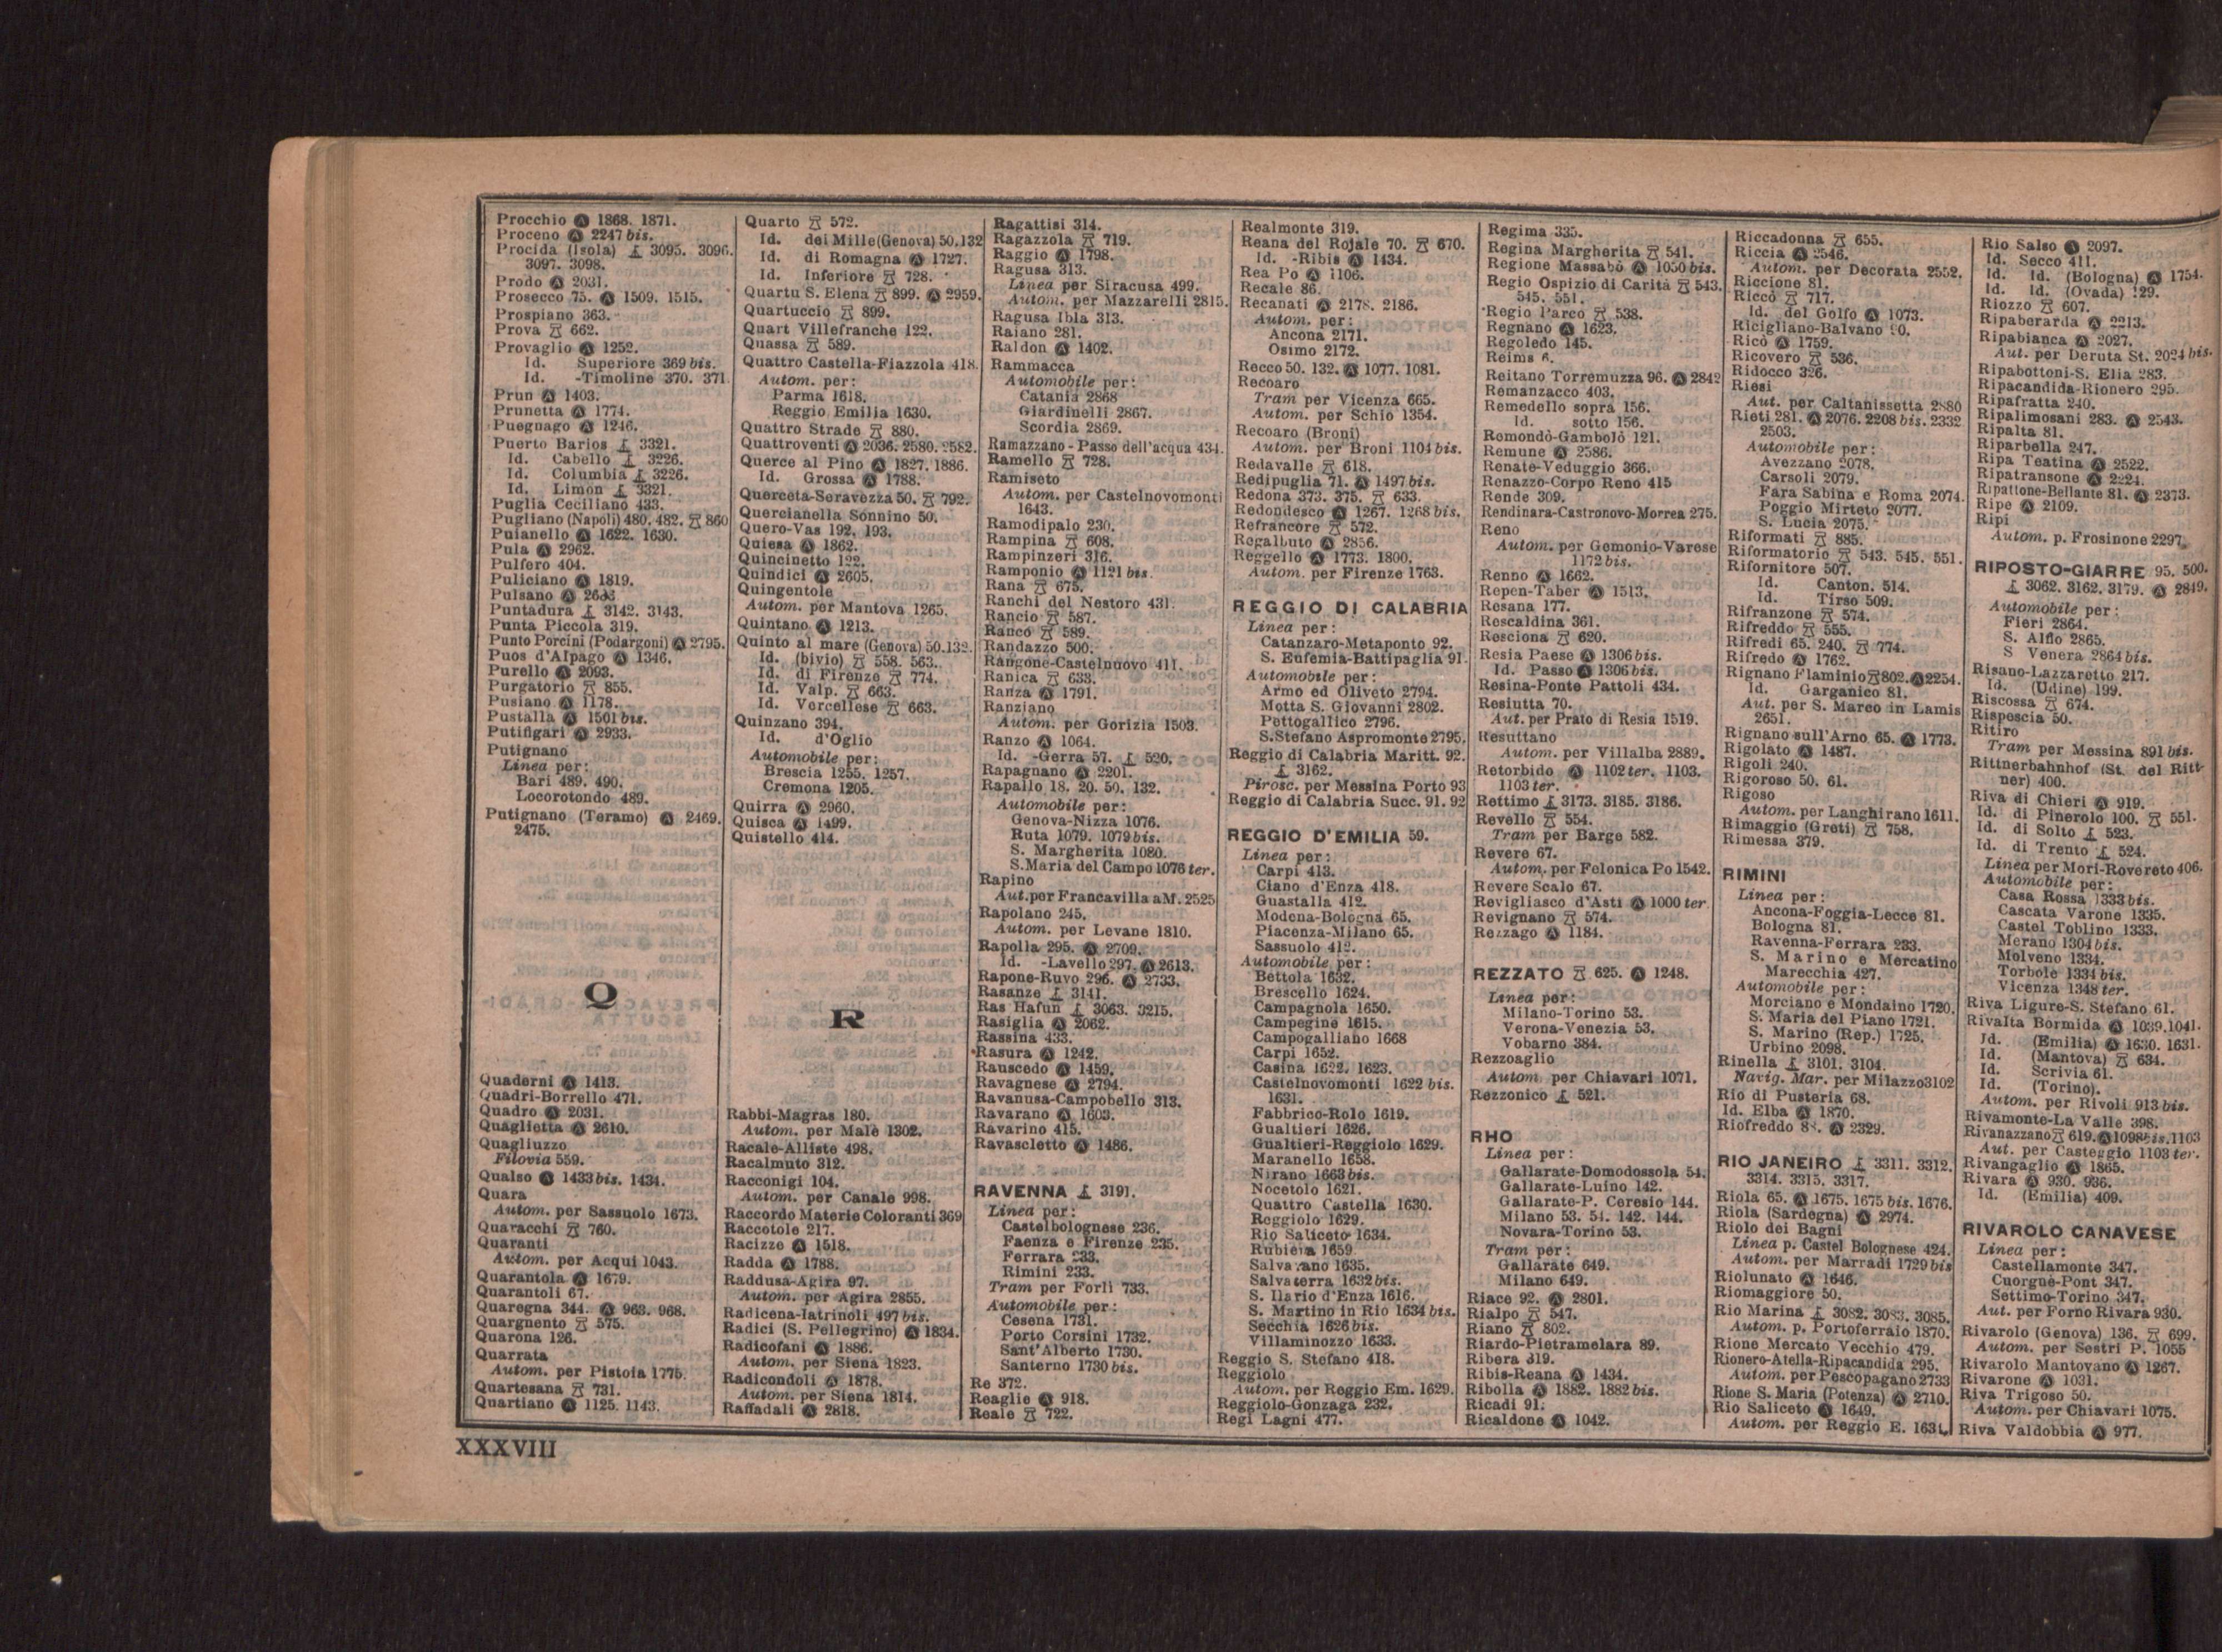 Procchio Ⓐ 1868. 1871.
Proceno Ⓐ 2247 bis.
Procida (Isola) 3095. 3096.
3097. 3098.
Prodo Ⓐ 2031.
Prosecco 75. Ⓐ 1509. 1515.
Prospiano 363.
Prova 662.
Provaglio Ⓐ 1252.
Id. Superiore 369 bis.
Id. -Timoline 370. 371.
Prun Ⓐ 1403.
Prunetta Ⓐ 1774.
Puegnago Ⓐ 1246.
Puerto Barios 3321.
Id. Cabello 3226.
Id. Columbia 3226.
Id. Limon 3321.
Puglia Ceciliano 433.
Pugliano (Napoli) 480. 482. 860
Puianello Ⓐ 1622. 1630.
Pula Ⓐ 2962.
Pulfero 404.
Puliciano Ⓐ 1819.
Pulsano Ⓐ
Puntadura 3142. 3143.
Punta Piccola 319.
Punto Porcini (Podargoni) Ⓐ 2795.
Puos d'Alpago Ⓐ 1346.
Purello Ⓐ 2093.
Purgatorio 855.
Pusiano Ⓐ 1178.
Pustalla Ⓐ 1501 bis.
Putifigari Ⓐ 2933.
Putignano
Linea per:
Bari 489. 490.
Locorotondo 489.
Putignano (Teramo) Ⓐ 2469.
2475.
Q
Quaderni Ⓐ 1413.
Quadri-Borrello 471.
Quadro Ⓐ 2031.
Quaglietta Ⓐ 2610.
Quagliuzzo
Filovia 559.
Qualso Ⓐ 1433 bis. 1434.
Quara
Autom. per Sassuolo 1673.
Quaracchi 760.
Quaranti
Autom. per Acqui 1043.
Quarantola Ⓐ 1679.
Quarantoli 67.
Quaregna 344. Ⓐ 963. 968.
Quargnento 575.
Quarona 126.
Quarrata
Autom. per Pistoia 1775.
Quartesana 731.
Quartiano Ⓐ 1125. 1143.
Quarto 572.
Id. dei Mille (Genova) 50.132
Id. di Romagna Ⓐ 1727.
Id. Inferiore 728.
Quartu S. Elena 899. Ⓐ 2959.
Quartuccio 899.
Quart Villefranche 122.
Quassa 589.
Quattro Castella-Piazzola 418.
Autom. per:
Parma 1618.
Reggio Emilia 1630.
Quattro Strade 880.
Quattroventi Ⓐ 2036. 2580. 2582.
Querce al Pino Ⓐ 1827. 1886.
Id. Grossa Ⓐ 1788.
Querceta-Seravezza 50. 792.
Quercianella Sonnino 50.
Quero-Vas 192. 193.
Quiesa Ⓐ 1862.
Quincinetto 122.
Quindici Ⓐ 2605.
Quingentole
Autom. per Mantova 1265.
Quintano Ⓐ 1213.
Quinto al mare (Genova) 50.132.
Id. (bivio) 558. 563.
Id. di Firenze 774.
Id. Valp. 663.
Id. Vercellese 663.
Quinzano 394.
Id. d'Oglio
Automobile per:
Brescia 1255. 1257.
Cremona 1205.
Quirra Ⓐ 2960.
Quisca Ⓐ 1499.
Quistello 414.
R
Rabbi-Magras 180.
Autom. per Malè 1302.
Racale-Alliste 498.
Racalmuto 312.
Racconigi 104.
Autom. per Canale 998.
Raccordo Materie Coloranti 369
Raccotole 217.
Racizze Ⓐ 1518.
Radda Ⓐ 1788.
Raddusa-Agira 97.
Autom. per Agira 2855.
Radicena-Iatrinoli 497 bis.
Radici (S. Pellegrino) Ⓐ 1834.
Radicofani Ⓐ 1886.
Autom. per Siena 1823.
Radicondoli Ⓐ 1878.
Autom. per Siena 1814.
Raffadali Ⓐ 2818.
Ragattisi 314.
Ragazzola 719.
Raggio Ⓐ 1798.
Ragusa 313.
Linea per Siracusa 499.
Autom. per Mazzarelli 2815.
Ragusa Ibla 313.
Raiano 281.
Raldon Ⓐ 1402.
Rammacca
Automobile per:
Catania 2868
Giardinelli 2867.
Scordia 2869.
Ramazzano - Passo dell'acqua 434.
Ramello 728.
Ramiseto
Autom. per Castelnovomonti
1643.
Ramodipalo 230.
Rampina 608.
Rampinzeri 316.
Ramponio Ⓐ 1121 bis.
Rana 675.
Ranchi del Nestoro 431.
Rancio 587.
Ranco 589.
Randazzo 500.
Rangone-Castelnuovo 411.
Ranica 633.
Ranza Ⓐ 1791.
Ranziano
Autom. per Gorizia 1503.
Ranzo Ⓐ 1064.
Id. -Gerra 57. 520.
Rapagnano Ⓐ 2201.
Rapallo 18. 20. 50. 132.
Automobile per:
Genova-Nizza 1076.
Ruta 1079. 1079 bis.
S. Margherita 1080.
S. Maria del Campo 1076 ter.
Rapino
Aut. per Francavilla a M. 2525
Rapolano 245.
Autom. per Levane 1810.
Rapolla 295. Ⓐ 2709.
Id. -Lavello 297. Ⓐ 2613.
Rapone-Ruvo 296. Ⓐ 2733.
Rasanze 3141.
Ras Hafun 3063. 3215.
Rasiglia Ⓐ 2062.
Rassina 433.
Rasura Ⓐ 1242.
Rauscedo Ⓐ 1459.
Ravagnese Ⓐ 2794.
Ravanusa-Campobello 313.
Ravarano Ⓐ 1603.
Ravarino 415.
Ravascletto Ⓐ 1486.
RAVENNA 3191.
Linea per:
Castelbolognese 236.
Faenza e Firenze 235.
Ferrara 233.
Rimini 233.
Tram per Forlì 733.
Automobile per:
Cesena 1731.
Porto Corsini 1732.
Sant'Alberto 1730.
Santerno 1730 bis.
Re 372.
Reaglie Ⓐ 918.
Reale 722.
Realmonte 319.
Reana del Rojale 70. 670.
Id. -Ribis Ⓐ 1434.
Rea Po Ⓐ 1106.
Recale 86.
Recanati Ⓐ 2178. 2186.
Autom. per:
Ancona 2171.
Osimo 2172.
Recco 50. 132. Ⓐ 1077. 1081.
Recoaro
Tram per Vicenza 665.
Autom. per Schio 1354.
Recoaro (Broni)
Autom. per Broni 1104 bis.
Redavalle 618.
Redipuglia 71. Ⓐ 1497 bis.
Redona 373. 375. 633.
Redondesco Ⓐ 1267. 1268 bis.
Refrancore 572.
Regalbuto Ⓐ 2856.
Reggello Ⓐ 1773. 1800.
Autom. per Firenze 1763.
REGGIO DI CALABRIA
Linea per:
Catanzaro-Metaponto 92.
S. Eufemia-Battipaglia 91.
Automobile per:
Armo ed Oliveto 2794.
Motta S. Giovanni 2802.
Pettogallico 2796.
S. Stefano Aspromonte 2795.
Reggio di Calabria Maritt. 92.
3162.
Pirosc. per Messina Porto 93
Reggio di Calabria Succ. 91. 92
REGGIO D'EMILIA 59.
Linea per:
Carpi 413.
Ciano d'Enza 418.
Guastalla 412.
Modena-Bologna 65.
Piacenza-Milano 65.
Sassuolo 412.
Automobile per:
Bettola 1632.
Brescello 1624.
Campagnola 1650.
Campegine 1615.
Campogalliano 1668
Carpi 1652.
Casina 1622. 1623.
Castelnovomonti 1622 bis.
1631.
Fabbrico-Rolo 1619.
Gualtieri 1626.
Gualtieri-Reggiolo 1629.
Maranello 1658.
Nirano 1663 bis.
Nocetolo 1621.
Quattro Castella 1630.
Reggiolo 1629.
Rio Saliceto 1634.
Rubiera 1659.
Salvarano 1635.
Salvaterra 1632 bis.
S. Ilario d'Enza 1616.
S. Martino in Rio 1634 bis.
Secchia 1626 bis.
Villaminozzo 1633.
Reggio S. Stefano 418.
Reggiolo
Autom. per Reggio Em. 1629.
Reggiolo-Gonzaga 232.
Regi Lagni 477.
Regima 335.
Regina Margherita 541.
Regione Massabò Ⓐ 1050 bis.
Regio Ospizio di Carità 543.
545. 551.
Regio Parco 538.
Regnano Ⓐ 1623.
Regoledo 145.
Reims 6.
Reitano Torremuzza 96. Ⓐ 2842
Remanzacco 403.
Remedello sopra 156.
Id. sotto 156.
Remondò-Gambolò 121.
Remune Ⓐ 2586.
Renate-Veduggio 366.
Renazzo-Corpo Reno 415
Rende 309.
Rendinara-Castronovo-Morrea 275.
Reno
Autom. per Gemonio-Varese
1172 bis.
Renno Ⓐ 1662.
Repen-Taber Ⓐ 1513.
Resana 177.
Rescaldina 361.
Resciona 620.
Resia Paese Ⓐ 1306 bis.
Id. Passo Ⓐ 1306 bis.
Resina-Ponte Pattoli 434.
Resiutta 70.
Aut. per Prato di Resia 1519.
Resuttano
Autom. per Villalba 2889.
Retorbido Ⓐ 1102 ter. 1103.
1103 ter.
Rettimo 3173. 3185. 3186.
Revello 554.
Tram per Barge 582.
Revere 67.
Autom. per Felonica Po 1542.
Revere Scalo 67.
Revigliasco d'Asti Ⓐ 1000 ter.
Revignano 574.
Rezzago Ⓐ 1184.
REZZATO 625. Ⓐ 1248.
Linea per:
Milano-Torino 53.
Verona-Venezia 53.
Vobarno 384.
Rezzoaglio
Autom. per Chiavari 1071.
Rezzonico 521.
RHO
Linea per:
Gallarate-Domodossola 54.
Gallarate-Luino 142.
Gallarate-P. Ceresio 144.
Milano 53. 54. 142. 144.
Novara-Torino 53.
Tram per:
Gallarate 649.
Milano 649.
Riace 92. Ⓐ 2801.
Rialpo 547.
Riano 802.
Riardo-Pietramelara 89.
Ribera 319.
Ribis-Reana Ⓐ 1434.
Ribolla Ⓐ 1882. 1882 bis.
Ricadi 91.
Ricaldone Ⓐ 1042.
Riccadonna 655.
Riccia Ⓐ 2546.
Autom. per Decorata 2552.
Riccione 81.
Riccò 717.
Id. del Golfo Ⓐ 1073.
Ricigliano-Balvano 90.
Ricò Ⓐ 1759.
Ricovero 536.
Ridocco 326.
Riesi
Aut. per Caltanissetta 2880
Rieti 281. Ⓐ 2076. 2208 bis. 2332
2503.
Automobile per:
Avezzano 2078.
Carsoli 2079.
Fara Sabina e Roma 2074.
Poggio Mirteto 2077.
S. Lucia 2075.
Riformati 885.
Riformatorio 543. 545. 551.
Rifornitore 507.
Id. Canton. 514.
Id. Tirso 509.
Rifranzone 574.
Rifreddo 555.
Rifredi 65. 240. 774.
Rifredo Ⓐ 1762.
Rignano Flaminio 802. Ⓐ 2254.
Id. Garganico 81.
Aut. per S. Marco in Lamis
2651.
Rignano sull'Arno 65. Ⓐ 1773.
Rigolato Ⓐ 1487.
Rigoli 240.
Rigoroso 50. 61.
Rigoso
Autom. per Langhirano 1611.
Rimaggio (Greti) 758.
Rimessa 379.
RIMINI
Linea per:
Ancona-Foggia-Lecce 81.
Bologna 81.
Ravenna-Ferrara 233.
S. Marino e Mercatino
Marecchia 427.
Automobile per:
Morciano e Mondaino 1720.
S. Maria del Piano 1721.
S. Marino (Rep.) 1725.
Urbino 2098.
Rinella 3101. 3104.
Navig. Mar. per Milazzo 3102
Rio di Pusteria 68.
Id. Elba Ⓐ 1870.
Riofreddo Ⓐ 2329.
RIO JANEIRO 3311. 3312.
3314. 3315. 3317.
Riola 65. Ⓐ 1675. 1675 bis. 1676.
Riola (Sardegna) Ⓐ 2974.
Riolo dei Bagni
Linea p. Castel Bolognese 424.
Autom. per Marradi 1729 bis
Riolunato Ⓐ 1646.
Riomaggiore 50.
Rio Marina 3082. 3083. 3085.
Autom. p. Portoferraio 1870.
Rione Mercato Vecchio 479.
Rionero-Atella-Ripacandida 295.
Autom. per Pescopagano 2733
Rione S. Maria (Potenza) Ⓐ 2710.
Rio Saliceto Ⓐ 1649.
Autom. per Reggio E. 1634.
Rio Salso Ⓐ 2097.
Id. Secco 411.
Id. Id. (Bologna) Ⓐ 1754.
Id. Id. (Ovada) 129.
Riozzo 607.
Ripaberarda Ⓐ 2213.
Ripabianca Ⓐ 2027.
Aut. per Deruta St. 2024 bis.
Ripabottoni-S. Elia 283.
Ripacandida-Rionero 295.
Ripafratta 240.
Ripalimosani 283. Ⓐ 2543.
Ripalta 81.
Riparbella 247.
Ripa Teatina Ⓐ 2522.
Ripatransone Ⓐ 2224.
Ripattone-Bellante 81. Ⓐ 2373.
Ripe Ⓐ 2109.
Ripi
Autom. p. Frosinone 2297.
RIPOSTO-GIARRE 95. 500.
3062. 3162. 3179. Ⓐ 2849.
Automobile per:
Fieri 2864.
S. Alfio 2865.
S Venera 2864 bis.
Risano-Lazzaretto 217.
Id. (Udine) 199.
Riscossa 674.
Rispescia 50.
Ritiro
Tram per Messina 891 bis.
Rittnerbahnhof (St. del Ritt-
ner) 400.
Riva di Chieri Ⓐ 919.
Id. di Pinerolo 100. 551.
Id. di Solto 523.
Id. di Trento 524.
Linea per Mori-Rovereto 406.
Automobile per:
Casa Rossa 1333 bis.
Cascata Varone 1335.
Castel Toblino 1333.
Merano 1304 bis.
Molveno 1334.
Torbole 1334 bis.
Vicenza 1348 ter.
Riva Ligure-S. Stefano 61.
Rivalta Bormida Ⓐ 1039.1041.
Id. (Emilia) Ⓐ 1630. 1631.
Id. (Mantova) 634.
Id. Scrivia 61.
Id. (Torino).
Autom. per Rivoli 913 bis.
Rivamonte-La Valle 398.
Rivanazzano 619. Ⓐ 1098 bis. 1103
Aut. per Casteggio 1103 ter.
Rivangaglio Ⓐ 1865.
Rivara Ⓐ 930. 936.
Id. (Emilia) 409.
RIVAROLO CANAVESE
Linea per:
Castellamonte 347.
Cuorgnè-Pont 347.
Settimo-Torino 347.
Aut. per Forno Rivara 930.
Rivarolo (Genova) 136. 699.
Autom. per Sestri P. 1055
Rivarolo Mantovano Ⓐ 1267.
Rivarone Ⓐ 1031.
Riva Trigoso 50.
Autom. per Chiavari 1075.
Riva Valdobbia Ⓐ 977.
XXXVIII